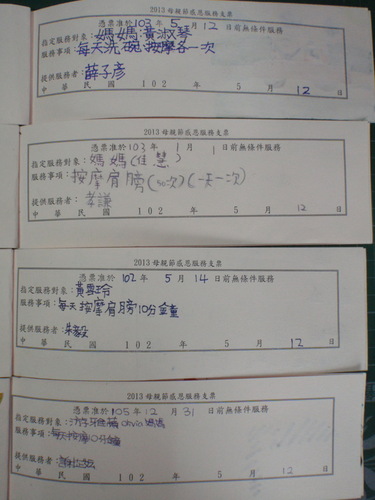 2013母親節感恩服務支票
憑票准於103年5月12日前無條件服務
指定服務對象：媽媽黃淑琴
服務事項：每天洗碗、按摩各一次
提供服務者：薛子彥
中華民國102年5月12日
2013母親節感恩服務支票
憑票准於103年1月1日前無條件服務
指定服務對象：媽媽(佳慧)
服務事項：按摩肩膀(50次)(一天一次)
提供服務者：孝謙
中華民國102年5月12日
2013母親節感恩服務支票
憑票准於102年5月14日前無條件服務
指定服務對象：黃雪玲
服務事項：每天按摩肩膀10分鐘
提供服務者：朱毅
中華民國102年5月12日
2013母親節感恩服務支票
憑票准於105年12月31日前無條件服務
指定服務對象：媽媽
服務事項：每天按摩10分鐘
提供服務者：
中華民國102年5月12日